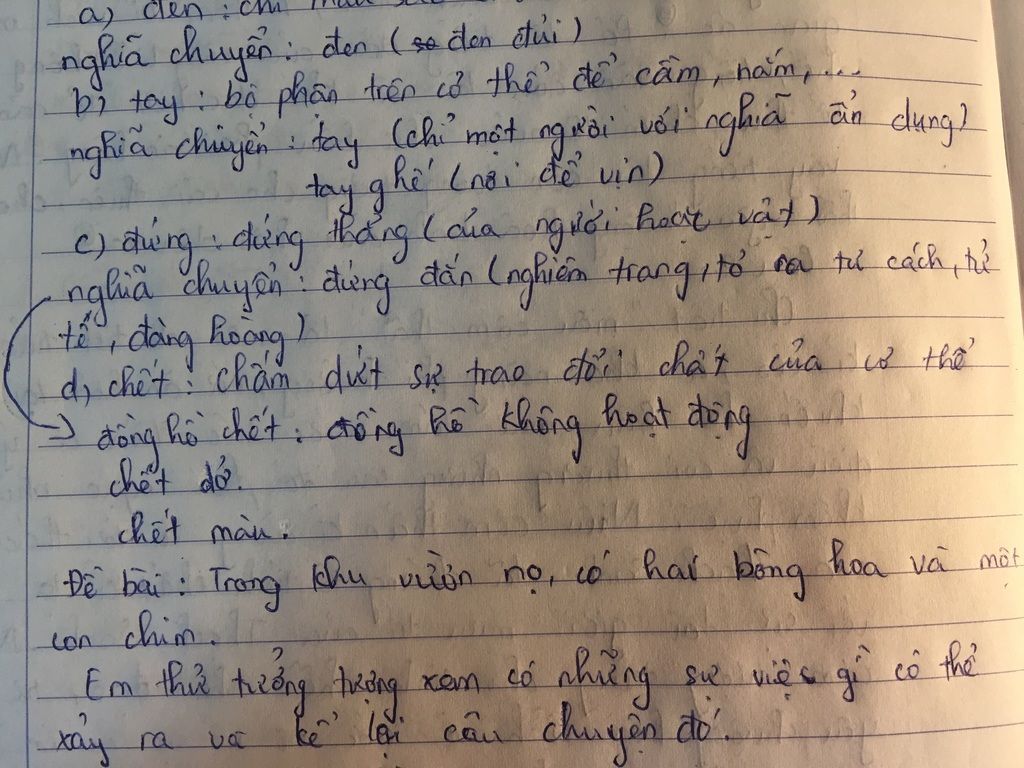 a) đen : chỉ màu
nghĩã chuyển : đen (đen đủi)
b) tay : bộ phận trên cở thể để cầm, nắm, ...
nghĩã chuyển : tay (chỉ một người với nghĩã ẩn dụng)
tay ghế (nơi để vịn)
c) đứng : đứng thẳng (của người hoặc vật)
nghĩã chuyển : đứng đắn (nghiêm trang, tỏ ra tư cách, tử
tế, đàng hoàng)
d) chết : chấm dứt sự trao đổi chất của cơ thể
→ đồng hồ chết : đồng hồ không hoạt động
chết dở.
chết màu.
Đề bài : Trong khu vườn nọ, có hai bông hoa và một
con chim.
Em thử tưởng tượng xem có những sự việc gì có thể
xảy ra và kể lại câu chuyện đó.